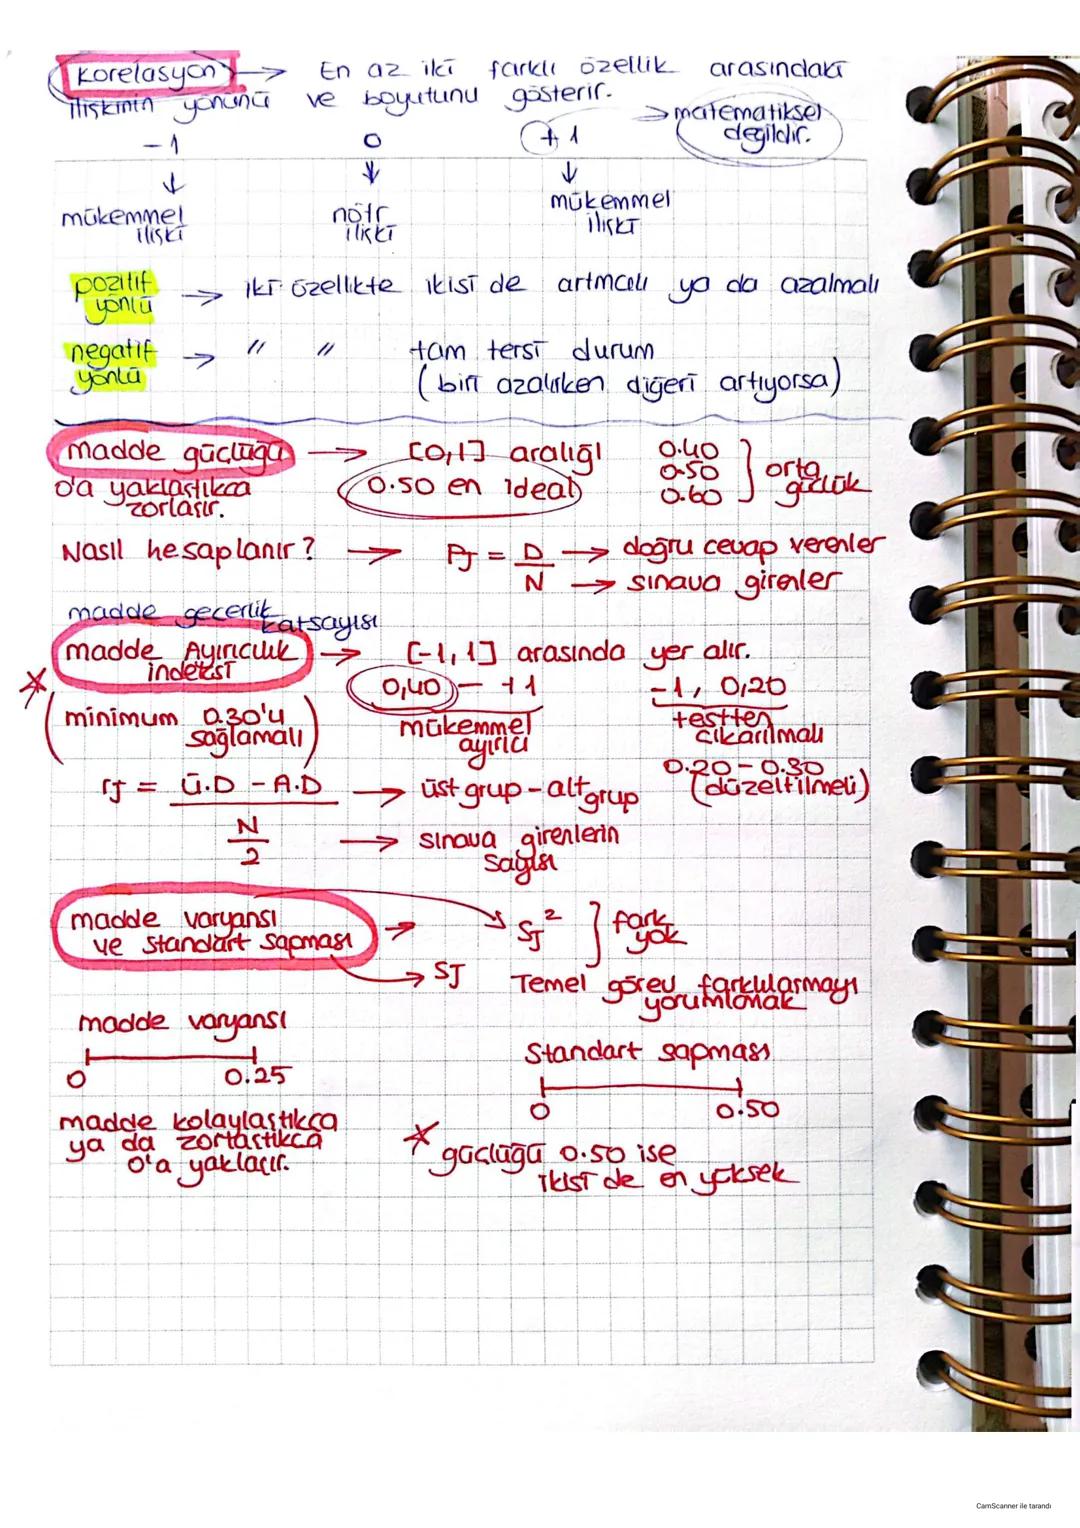 Korelasyon → En az iki farklı özellik arasındaki
ilişkinin yönünü ve boyutunu gösterir.
→ matematiksel
değildir.
-1 0 +1
↓ ↓ ↓
mükemmel ilişki
nötr ilişki
mükemmel ilişki
pozitif yönlü → iki özellikte ikisi de artmalı ya da azalmalı
negatif yönlü → " " tam tersi durum
(biri azalırken diğeri artıyorsa)
madde güçlüğü → [0,1] aralığı
0'a yaklaştıkça
zorlaşır.
0.50 en ideal
0.40
0.50
0.60
orta
güçlük
Nasıl hesaplanır? → Pj = D → doğru cevap verenler
N → sınava girenler
madde geçerlik katsayısı
madde Ayırıcılık → [-1, 1] arasında yer alır.
indeksi
(minimum 0.30'u
sağlamalı)
0,40 - +1
mükemmel
ayırıcı
-1, 0,20
testten
çıkarılmalı
0.20 - 0.30
(düzeltilmeli)
rj = Ü.D - A.D → üst grup - alt grup
N
2
→ sınava girenlerin
sayısı
madde varyansı
ve standart sapması → Sj²
} fark
yok
→ Sj
Temel görev farklılaşmayı
yorumlamak
madde varyansı
0 0.25
Standart sapması
0 0.50
madde kolaylaştıkça
ya da zorlaştıkça
0'a yaklaşır.
* güçlüğü 0.50 ise
ikisi de en yüksek
CamScanner ile tarandı